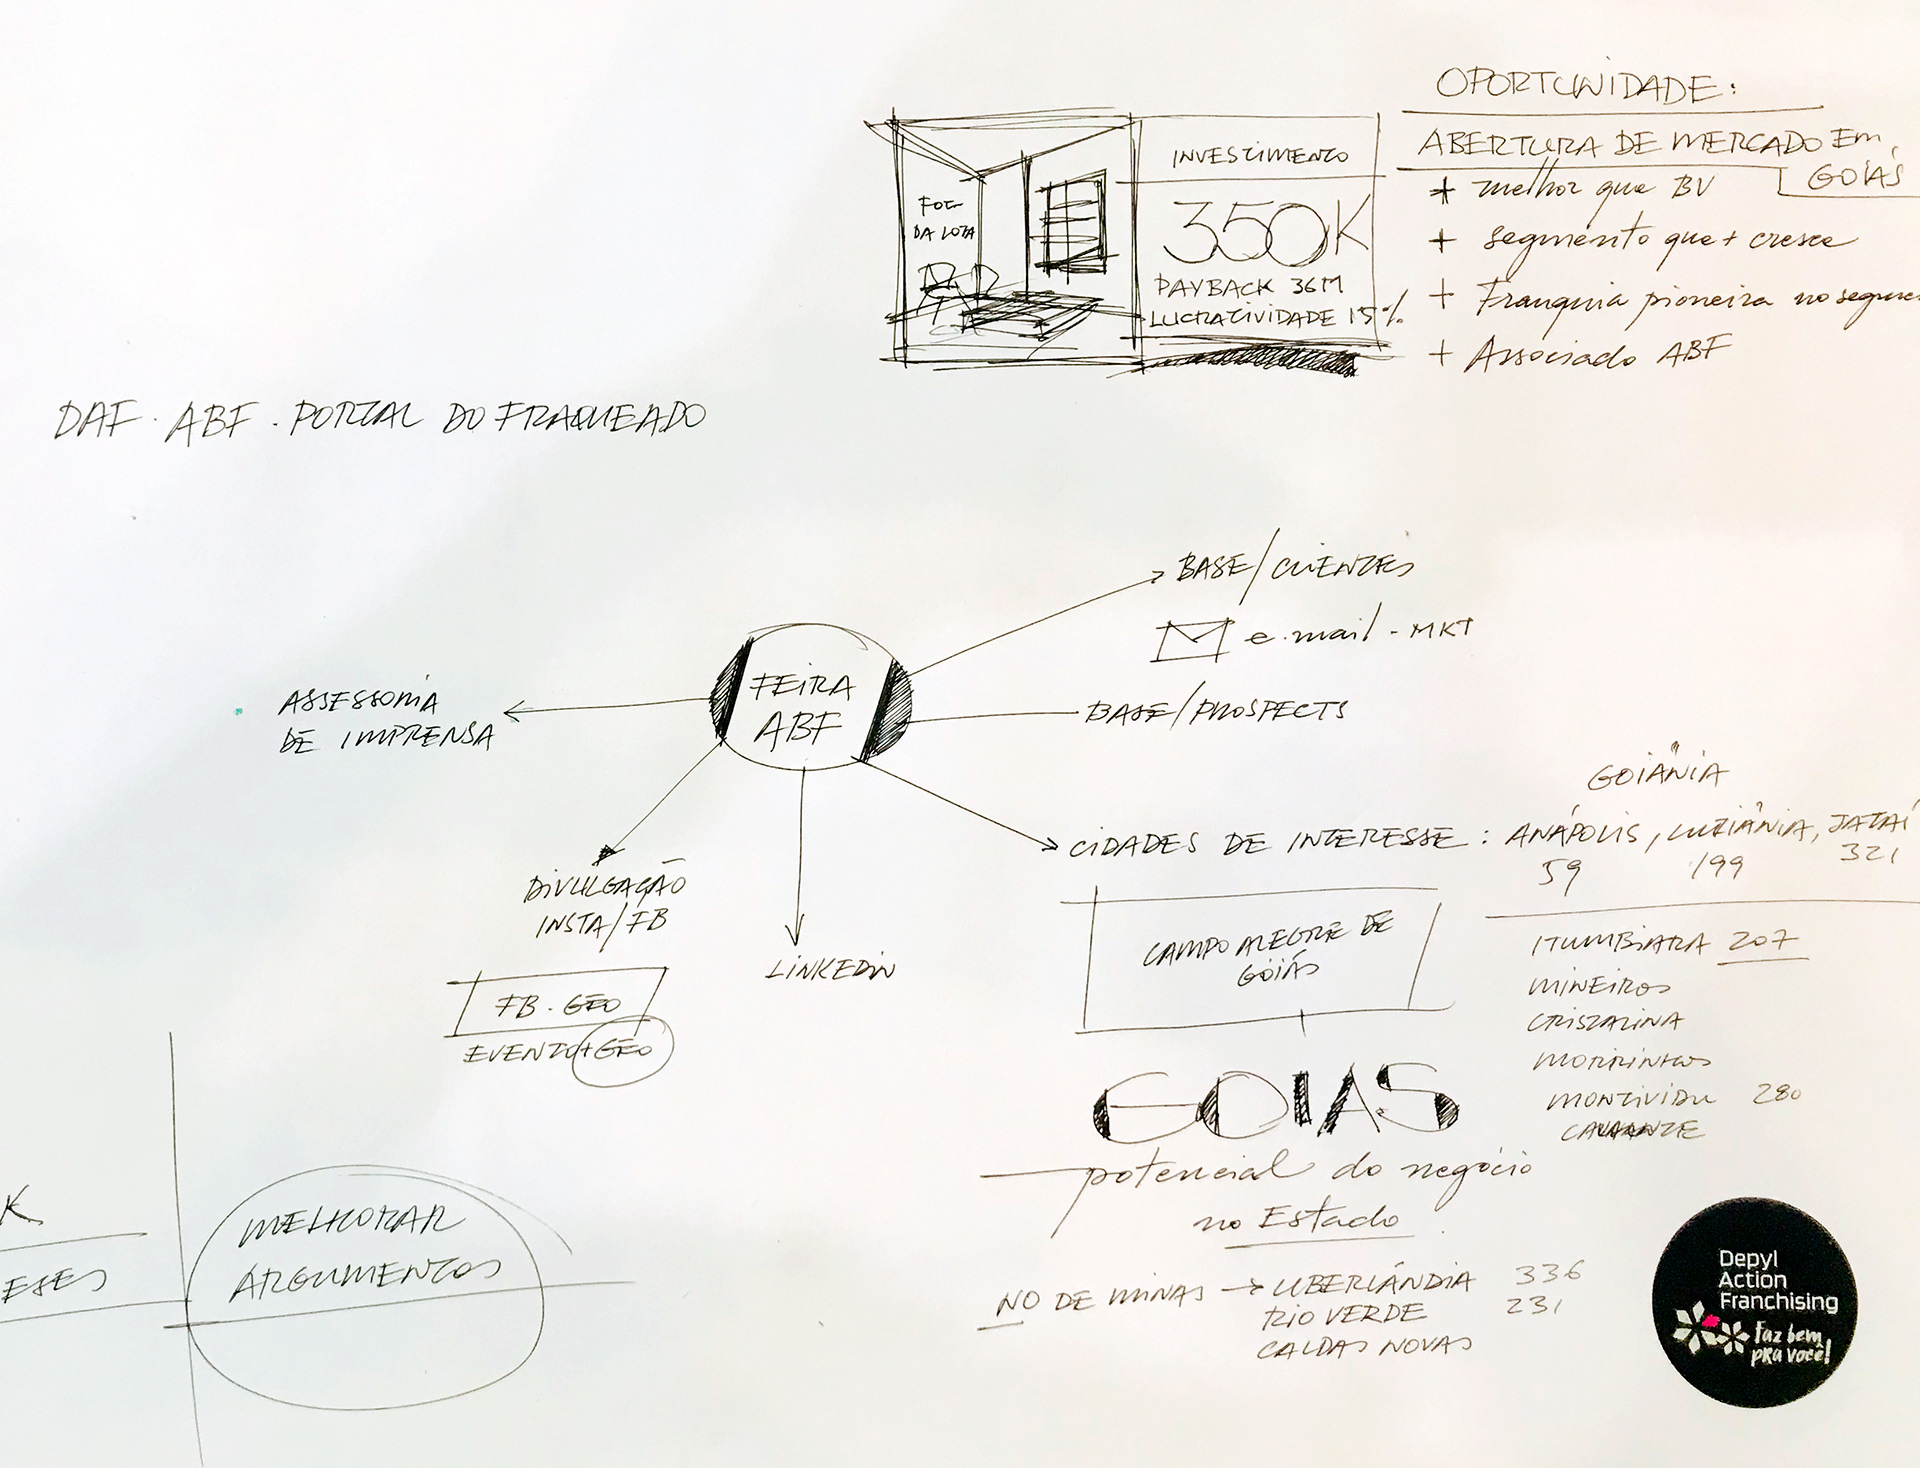 OPORTUNIDADE:
ABERTURA DE MERCADO EM
GOIÁS
* melhor que BV
+ segmento que + cresce
+ Franquia pioneira no segme
+ Associado ABF
INVESTIMENTO
350K
PAYBACK 36M
LUCRATIVIDADE 15%
DA LOJA
DAF . ABF . PORTAL DO FRAQUEADO
FEIRA
ABF
BASE/CLIENTES
e.mail - MKT
BASE/PROSPECTS
ASSESSORIA
DE IMPRENSA
DIVULGAÇÃO
INSTA/FB
FB.GEO
EVENTO+GEO
LINKEDIN
GOIÂNIA
CIDADES DE INTERESSE : ANÁPOLIS, LUZIÂNIA, JATAÍ
59 199 321
CAMPO ALEGRE DE
GOIÁS
ITUMBIARA 207
MINEIROS
CRISTALINA
MORRINHOS
MONTIVIDIU 280
GOIAS
potencial do negócio
no Estado
NO DE MINAS → UBERLÂNDIA 336
RIO VERDE 231
CALDAS NOVAS
K
ESES
MELHORAR
ARGUMENTOS
Depyl
Action
Franchising
Faz bem
pra você!